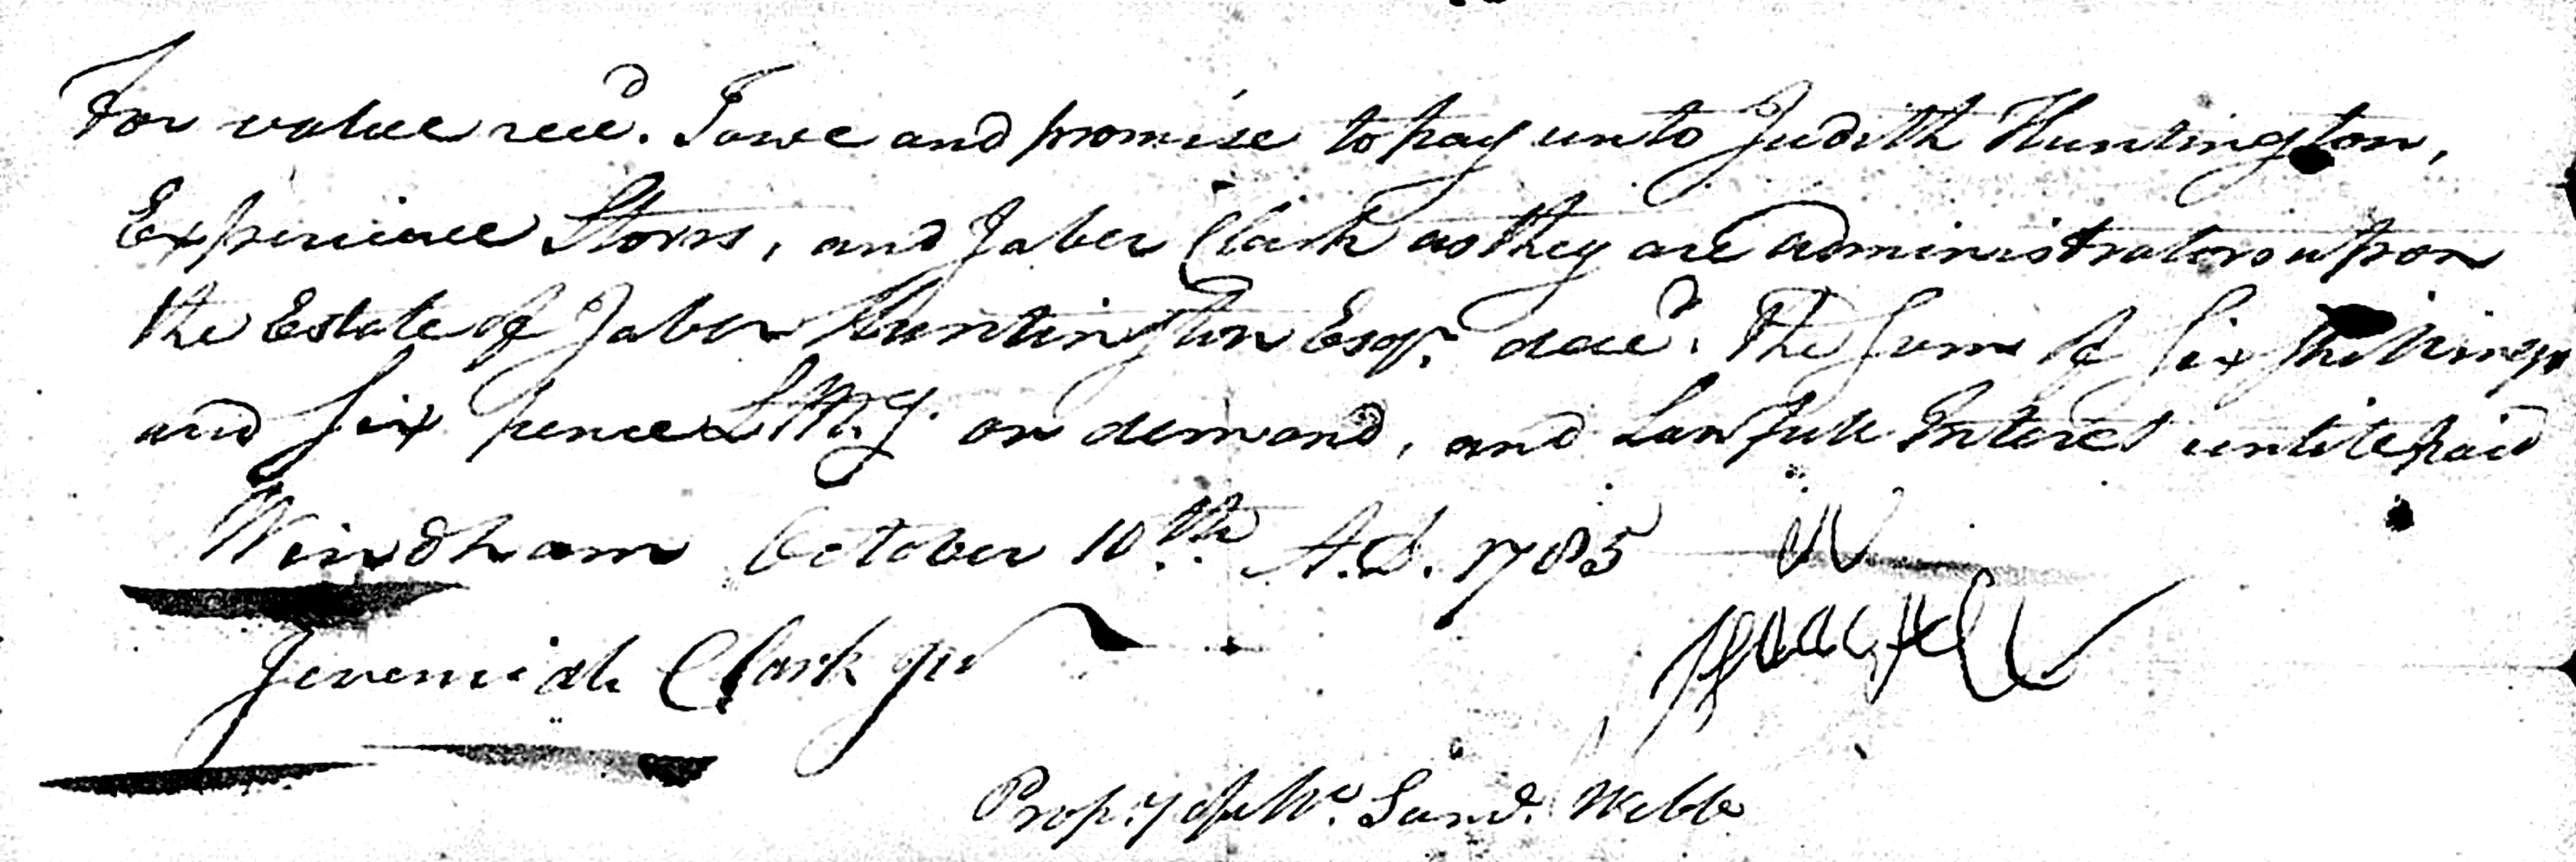 For value recd. I owe and promise to pay unto Judith Huntington,
Experience Storrs, and Jabez Clark as they are administrators upon
the Estate of Jabez Huntington Esqr. decd. The Sum of Six Shillings
and Six pence LMy. on demand, and Lawfull Interest untill paid
Windham October 10th. A.D. 1785
Jeremiah Clark Jur
Propy of Mr. Saml. Webb